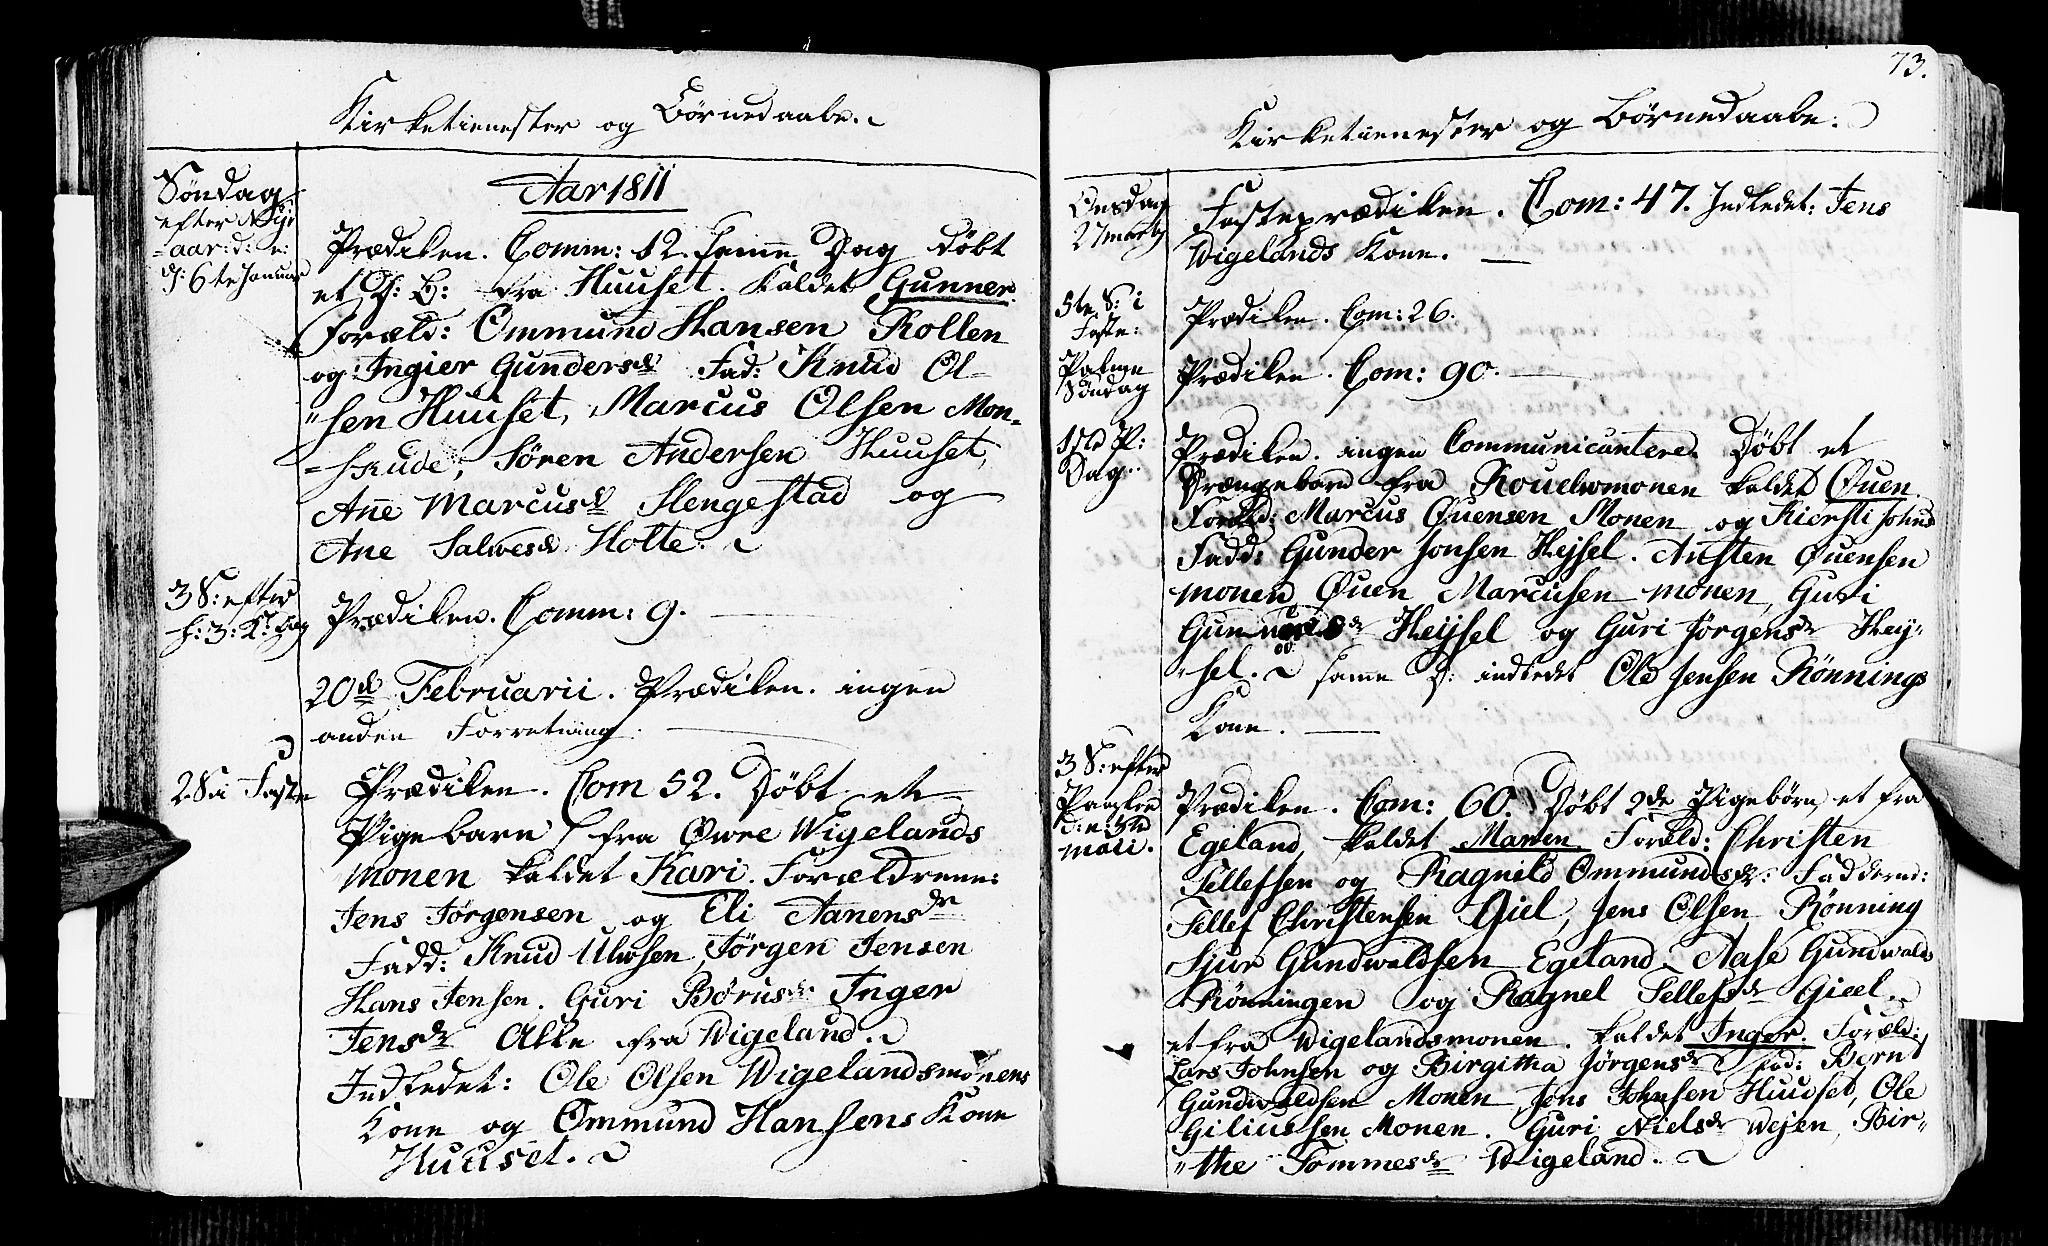 Kirketienester og Børnedaabe.
Søndag
efter Nyt
-aar: d: e:
d: 6te Januar
Aar 1811
Prædiken. Comm: 12. samme Dag døbt
et D: B: fra Huuset. kaldet Gunner.
Foræld: Ommund Hansen Kollen
og Ingier Gundersdr Fad: Knud Ol-
"sen Huuset, Marcus Olsen Mon-
-skude, Sören Andersen Huuset,
Ane Marcusdr Slengestad og
Ane Salvesdr Holte.
3 S: efter
h: 3: K: Dag
Prædiken. Comm: 9.
20de Februarii. Prædiken. ingen
anden Forretning.
2. S. i Faste
Prædiken. Com 52. Døbt et
Pigebarn fra Øvre Wigelands
monen kaldet Kari. Forældrene:
Jens Jørgensen og Eli Aanensdr
Fadd: Knud Ulvsen, Jörgen Jensen
Hans Jensen. Guri Børusdr Inger
Jensdr Alle fra Wigeland.
Indledet: Ole Olsen Wigelandsmonens
Kone og Ommund Hansens Kone
Huuset.
73.
Kirketienester og Børnedaabe.
Onsdag
27 Marty
Fasteprædiken. Com: 47. Indledet: Jens
Wigelands Kone.
5te S: i
Faste:
Prædiken. Com: 26.
Palme
Søndag
Prædiken. Com: 90.
1ste P:
Dag.
Prædiken. ingen Communicantere. Døbt et
Drængebarn fra Kouelwmonen kaldet Øuen
Foræld: Marcus Øuensen Monen og Kiersti Johns
Fadd: Gunder Jonsen Heysel. Austen Øuensen
monen Øuen Marcusen monen, Guri
Heijsel og Guri Jørgensdr Hey-
-sel. samme D: indledet Ole Jensen Rönnings
Kone.
3 S: efter
Paaske
d: e: 5te
Maii.
Prædiken. Com: 60. Døbt 2de Pigebørn, et fra
Egeland, kaldet Maren. Foræld: Christen
Tellefsen og Ragnild Ommundsdr: Fadderne:
Tellef Christensen Giel, Jens Olsen Rönning
Sjur Gundwaldsen Egeland, Aase Gundwalds
Rönningen og Ragnel Tellefsdr Gieel.
et fra Wigelandsmonen. kaldet Inger. Foræld:
Lars Johnsen og Birgitha Jörgensdr Fad: Bernt
Gundwaldsen Monen, Jens Johnsen Huuset, Ole
Giliussen Monen. Guri Nielsdr Wejen, Bir-
"the Tommesdr Wigeland.